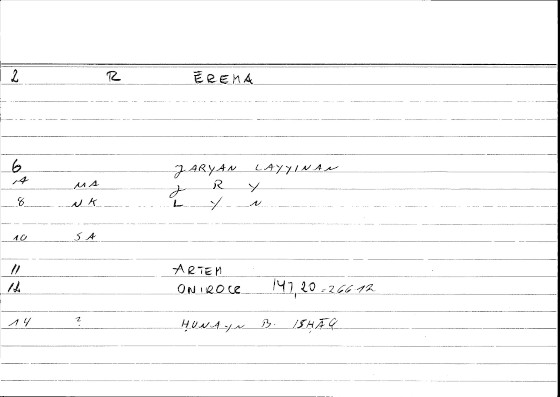 2 R ĒREMA
6 JARYAN LAYYINAN
14 MA J R Y
8 NK L Y N
10 SA
11 ARTEM
12 ONIROCR 147,20 = 266 12
14 ? ḤUNAYN B. ISḤĀQ